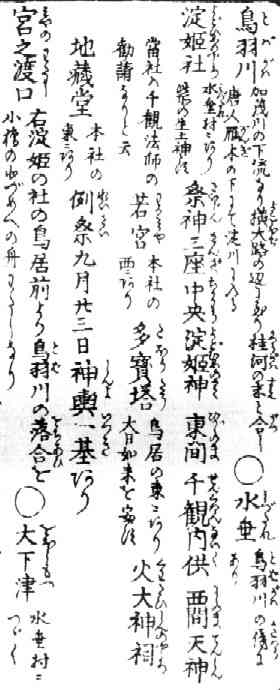 鳥羽川 加茂川の下流なり横大路の辺に到り桂河の末と合し
唐人雁木の下にて淀川に入る ○水垂 鳥羽川の傍に
あり
淀姫社 水垂村にあり
此所の生土神とす 祭神三座中央淀姫神 東間千観内供 西間天神
当社ハ千観法師の
勧請なりと云 若宮 本社の
西にあり 多寶塔 鳥居の東にあり
大日如来を安す 火大神祠
地蔵堂 本社の
東にあり 例祭九月廿三日神輿一基あり
宮之渡口 右淀姫の社の鳥居前より鳥羽川の落合を
小橋の
○大下津 水垂村に
つゞく